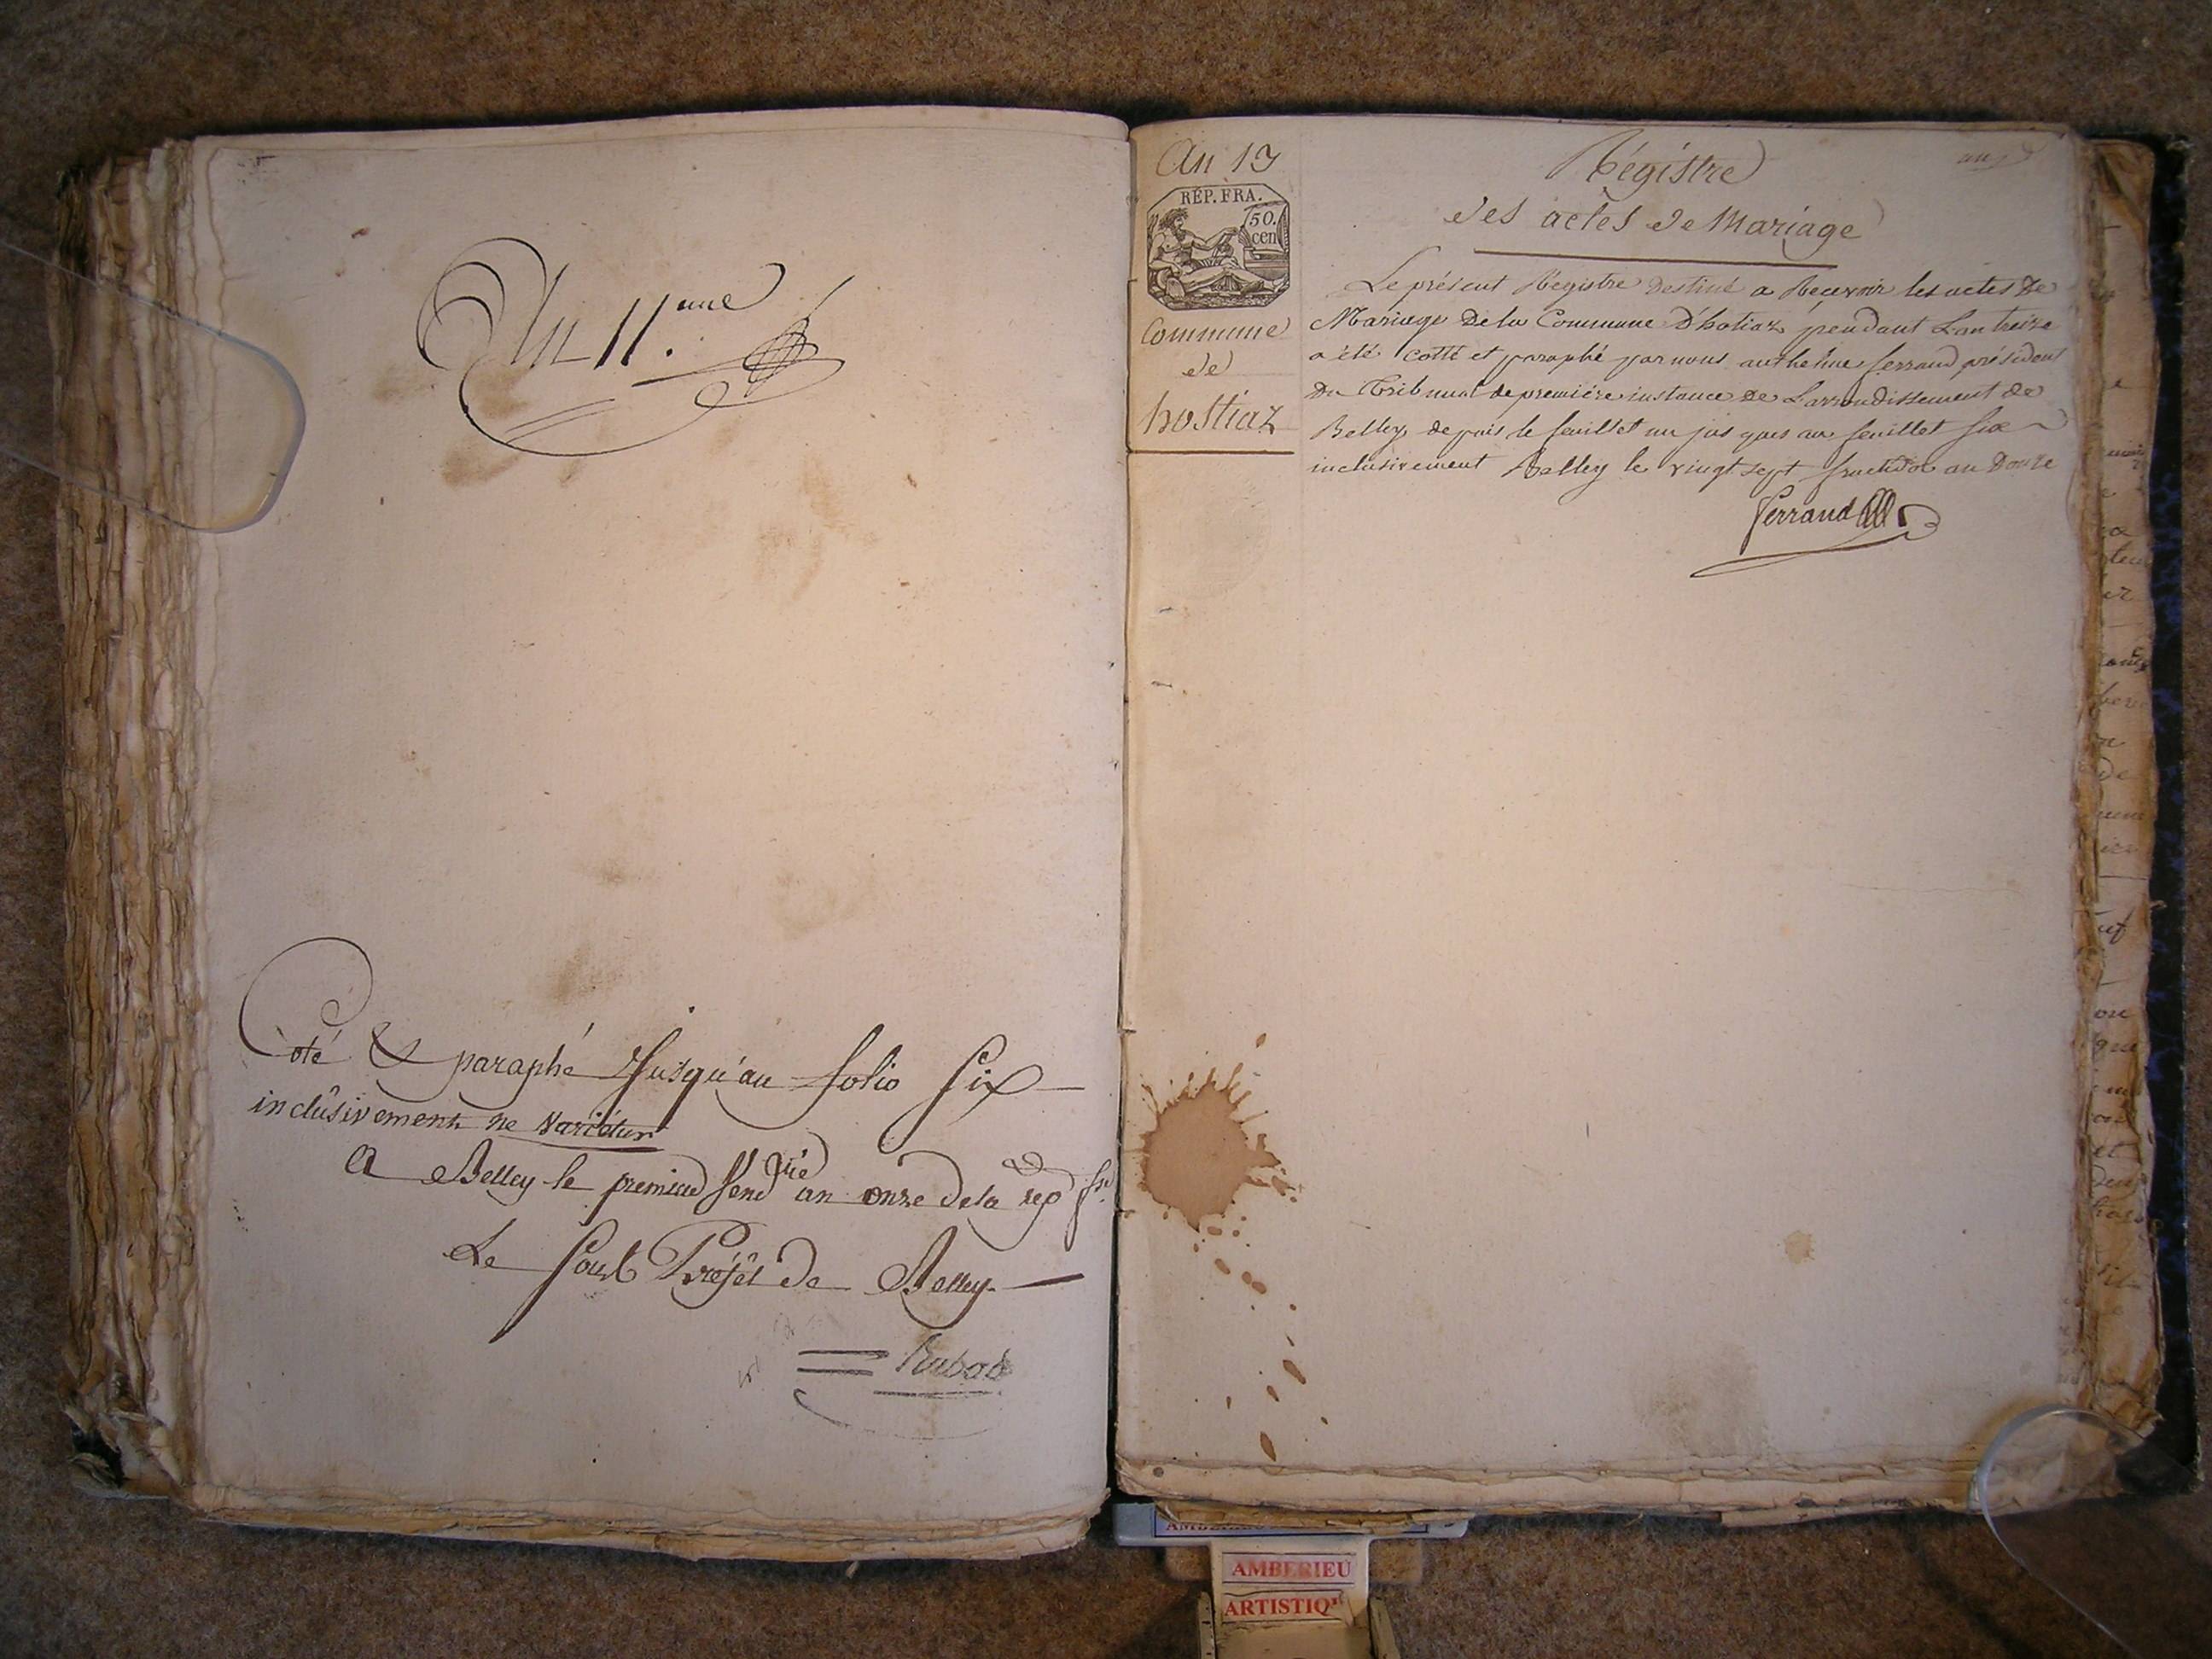 An 11.eme
Coté & paraphé Jusqu'au folio Six
inclûsivement ne Varietur
A Belley le premier Vend.rie an onze de la rep fse
Le Sous Préfêt de Belley
Rubod
An 13
RÉP. FRA.
50.
cen
Commune
de
hostiaz
Régistre
des actes de Mariage
Le présent Régistre Destiné a Recevoir les actes De
Mariage De la Commune D'hotiaz pendant Lan treize
a été cotté et paraphé par nous anthelme ferrand président
Du Tribunal de première instance De Larrondissement de
Belley depuis le feuillet un jus ques au feuillet six
inclusivement Belley le vingt sept fructidor an Douze
Ferrand
AMBERIEU
ARTISTIQ